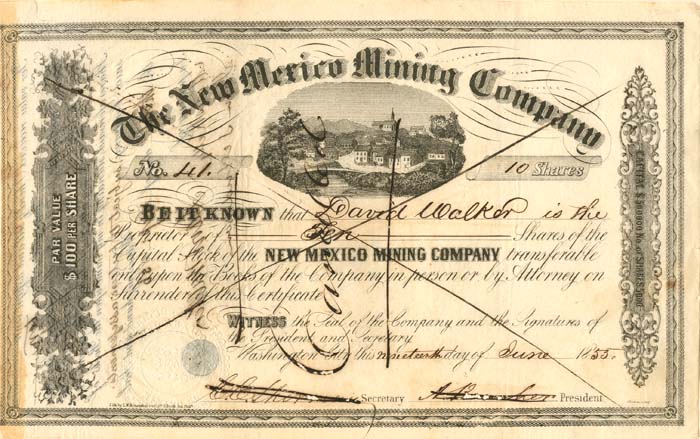 The New Mexico Mining Company
No. 41.
10 Shares
PAR VALUE
$100 PER SHARE
BE IT KNOWN that David Walker is the
Proprietor of Ten Shares of the
Capital Stock of the NEW MEXICO MINING COMPANY transferable
only upon the Books of the Company in person or by Attorney on
Surrender of this Certificate
WITNESS the Seal of the Company and the Signatures of
the President and Secretary
Washington City this nineteenth day of June 1855.
Secretary
President
Cancelled